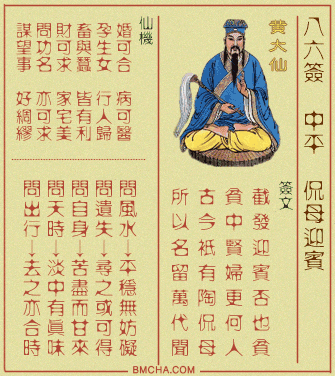 八六簽 中平 侃母迎賓
黃大仙
簽文
截發迎賓古也貧
貧中賢婦更何人
古今祇有陶侃母
所以名留萬代聞
仙機
婚可合 病可醫
孕生女 行人歸
畜與蠶 皆有利
財可求 家宅美
問功名 亦可求
謀望事 好綢繆
問風水→平穩無妨礙
問遺失→尋之或可得
問自身→苦盡而甘來
問天時→淡中有眞味
問出行→去之亦合時
BMCHA.COM